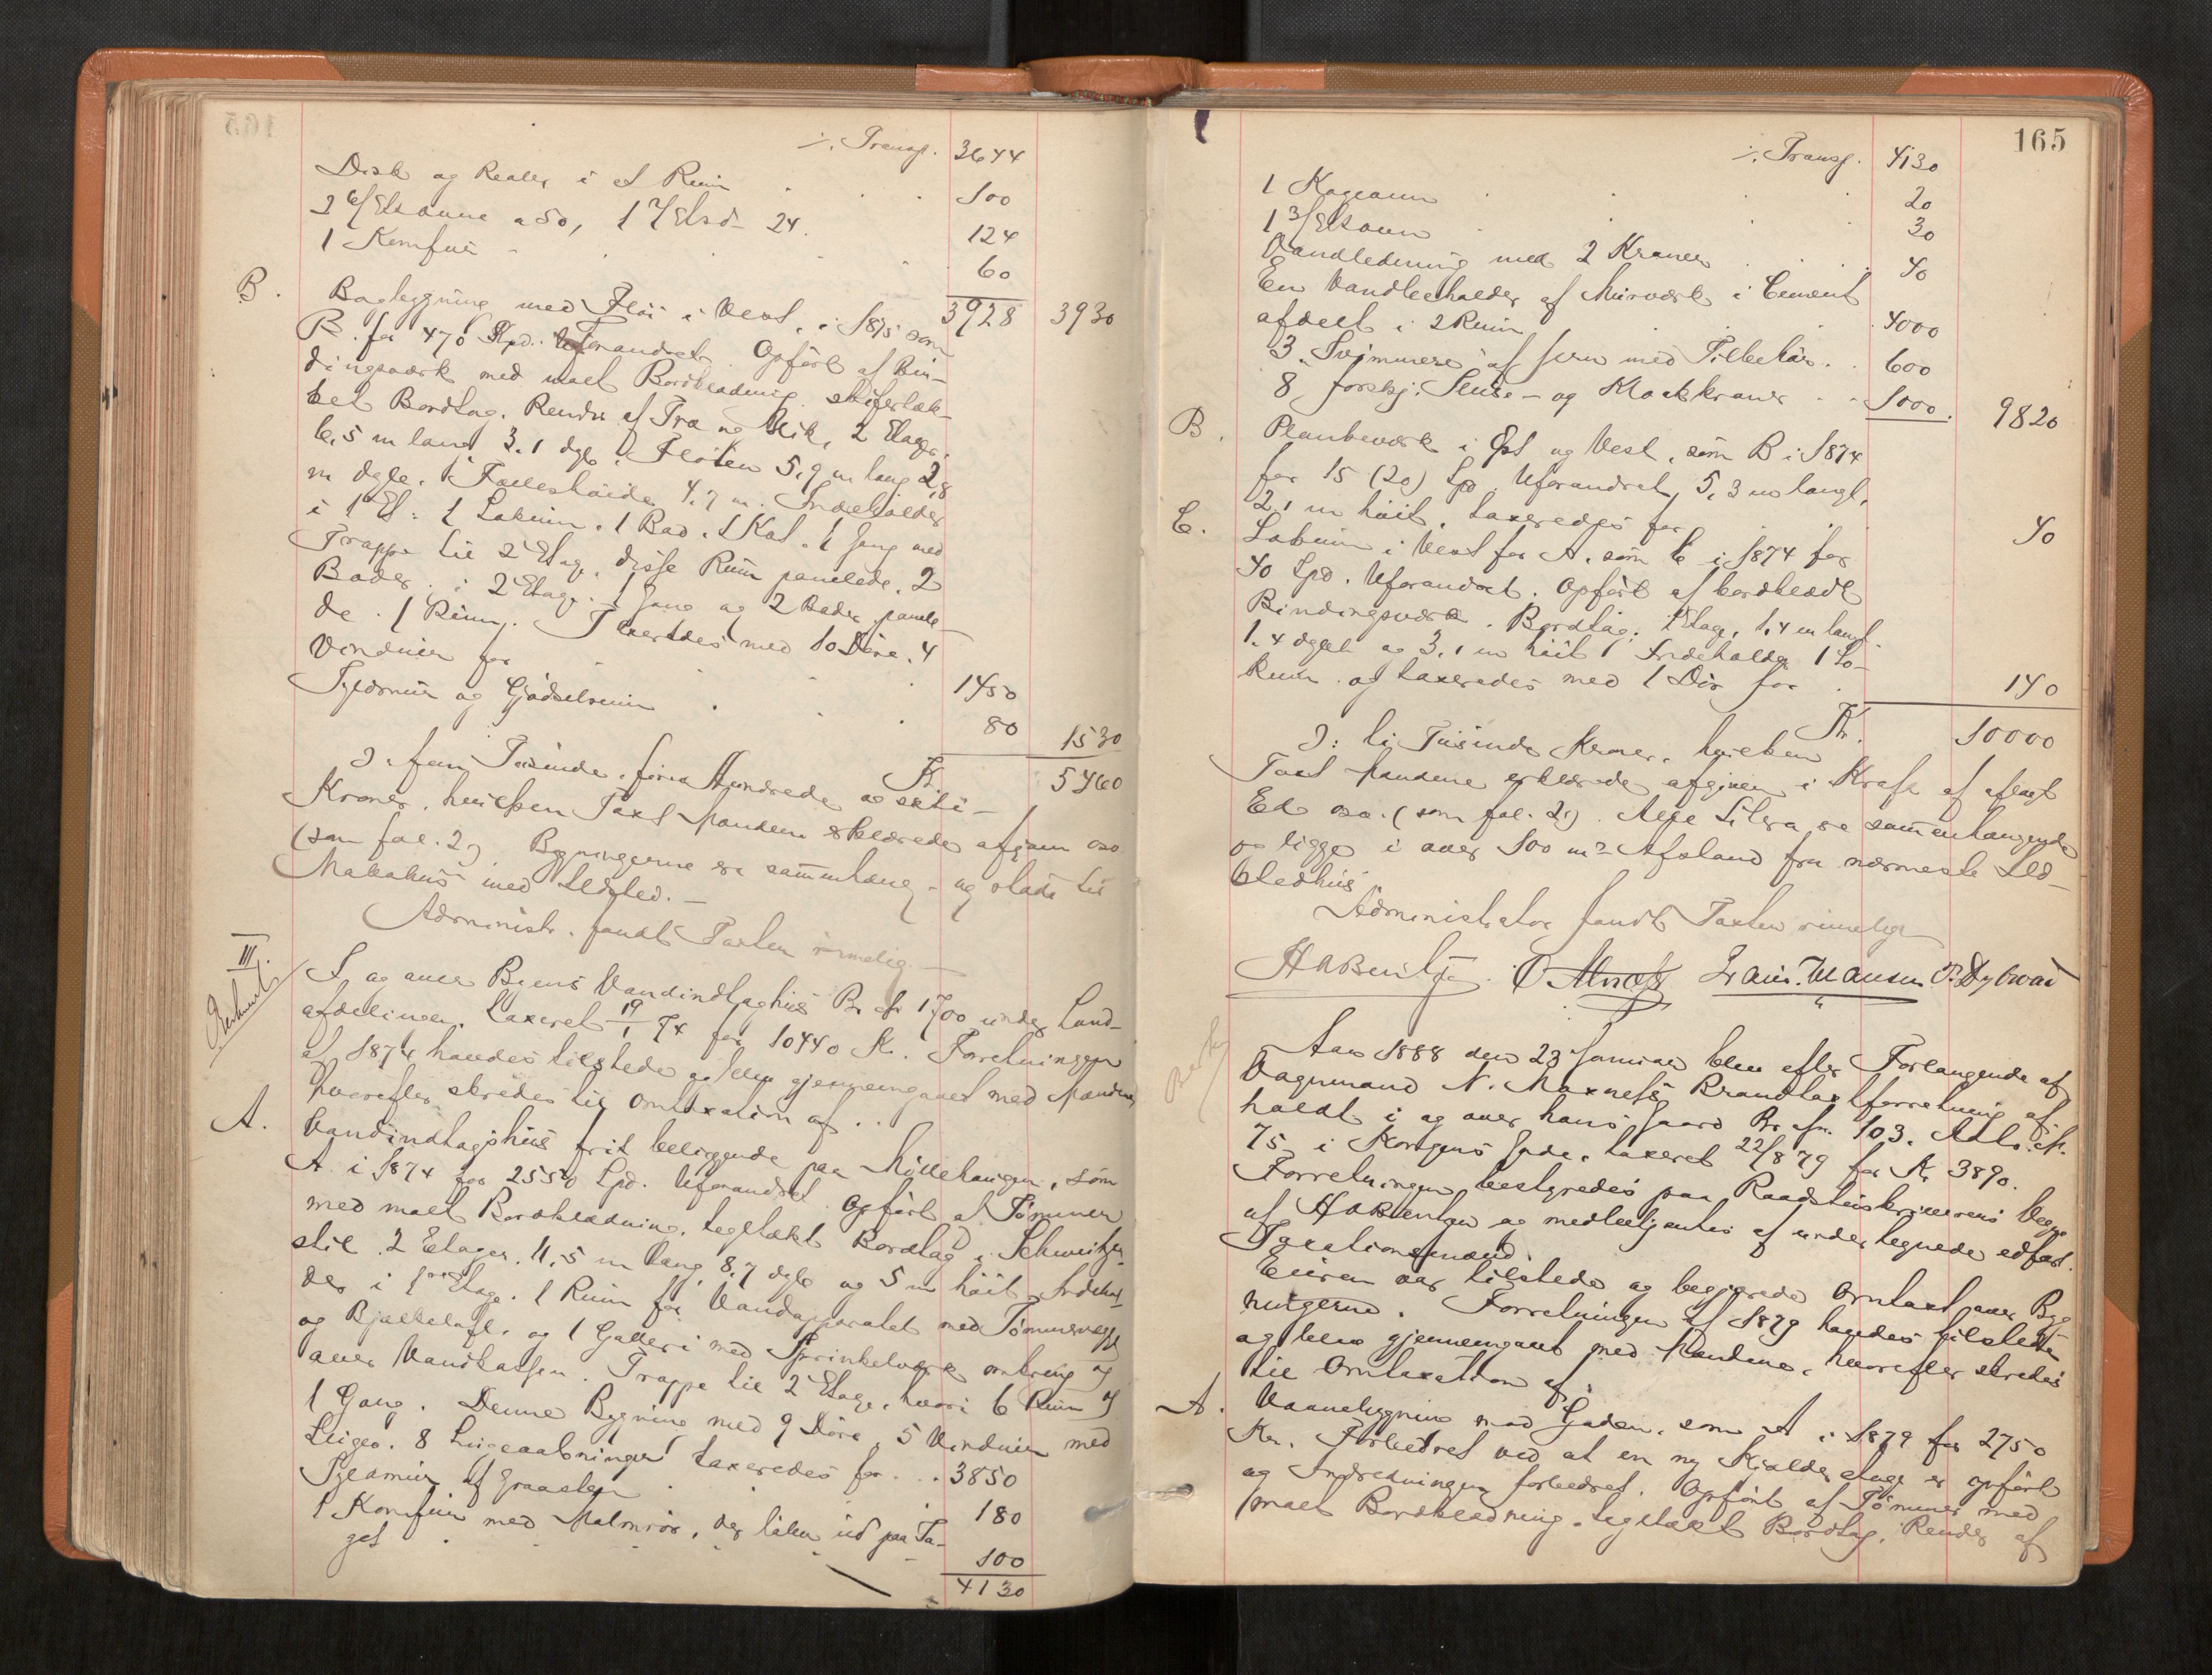 ./. Transp. 3644
Disk og Reoler i et Rum 100
2 6/Etsovne a 50, 1 7/Etsd. 24. 124
1 Komfur 60
3928 3930
B. Bagbygning med Fløi i Vest, i 1875 som
B. for 470 Spd. Uforandret. Opført af Bin-
dingsværk med malt Bordklædning, skifertæk-
ket Bordtag. Render af Træ og Blik, 2 Etager,
6,5 m lang 3.1 dyb. Fløien 5,9 m lang 2,8
m dyb. Fælleshøide 4.7 m. Indeholder
i 1 Et: 1 Lokum. 1 Bad. 1 Kot. 1 Gang med
Trappe til 2 Etage, disse Rum panelede. 2
Boder. i 2 Etage. 1 Gang og 2 Boder panele-
de. 1 Rum. Taxertes med 10 Døre. 4
Vinduer for 1450
Ildsmur og Gjødselrum 80 1530
Kr. 5460
ɔ: fem Tusinde, fire Hundrede og seksti-
Kroner, hvilken Taxt Mændene erklærede afgiven osv.
(som fol. 2) Bygningerne er sammenhæng. og støde til
Nabohus med Ildsted. —
Administr. fandt Taxten rimelig. —
III. I og over Byens Vandindtagshus Br. № 1700 under Land-
afdelingen, taxeret 19/1 78 for 10440 Kr. Forretningen
af 1874 havdes tilstede og blev gjennemgaaet med Mændene,
hvorefter skredes til Omtaxation af . .
A. Vandindtagshus frit beliggende paa Møllehaugen, som
A. i 1874 for 2550 Spd. Uforandret. Opført af Tømmer
med malt Bordklædning, tegltækt Bordtag i Schweitzer-
stil. 2 Etager. 11.5 m lang 8,7 dyb og 5 m høit. Indehol-
der i 1ste Etage. 1 Rum for Vandapparatet med Tømmervæg
og Bjælkeloft, og 1 Galleri med Sprinkelværk omkring og
over Vandkassen. Trappe til 2 Etage, hvori 6 Rum og
1 Gang. Denne Bygning med 9 Døre, 5 Vinduer med
Luger. 8 Lugeaabninger taxeredes for . . . 3850
Ildmur af Graasten 180
1 Komfur med Malmrør, der løber ud paa Ta-
get 100
4130
165
./. Transp. 4130
1 Kogeovn 20
1 3/Etsovn 30
Vandledning med 2 Kraner 40
En Vandbeholder af Murværk i Cement
afdelt i 2 Rum 4000
3 Svømmere af Jern med Tilbehør. 600
8 forskj. Sluse- og Stoakkraner 1000. 9820
B. Plankeværk i Øst og Vest, som B i 1874
for 15 (20) Spd. Uforandret, 5,3 m langt,
2,1 m høit, taxeredes for 40
C. Lokum i Vest for A. som C i 1874 for
40 Spd. Uforandret. Opført af bordklædt
Bindingsværk. Bordtag. 1 Etage, 1,4 m langt
1.4 dybt og 3.1 m høit. Indeholder 1 Lo-
kum. og taxeredes med 1 Dør for 140
Kr. 10000
ɔ: ti Tusinde Kroner, hvilken
Taxt Mændene erklærede afgiven i Kraft af aflagt
Ed osv. (som fol. 2). Alle Litera er sammenhængende
og ligge i over 100 m Afstand fra nærmeste Ild-
stedhus.
Administrator fandt Taxten rimelig
HABentzen. Hans. Hansen
Aar 1888 den 23 Januar blev efter Forlangende af
Vognmand N. Maxnæss Brandtaxtforretning af-
holdt i og over hans Gaard Br. afr. 103. Mtr. №.
75 i Kongens Gade, taxeret 22/8 79 for Kr. 3890.
Forretningen bestyredes paa Raadstueskriverens Vegne
af HABentzen og medbetjentes af undertegnede edfæst.
Taxationsmænd.
Eieren var tilstede og begjærede Omtaxt over Byg-
ningerne. Forretningen af 1879 havdes tilstede
og blev gjennemgaaet med Mændene, hvorefter skredes
til Omtaxation af:
A. Vaanebygning mod Gaden, som A i 1879 for 2750
Kr. Forbedret ved at en ny Kjælderetage er opført
og Indredningen forbedret. Opført af Tømmer med
malt Bordklædning, tegltækt Bordtag. Render af